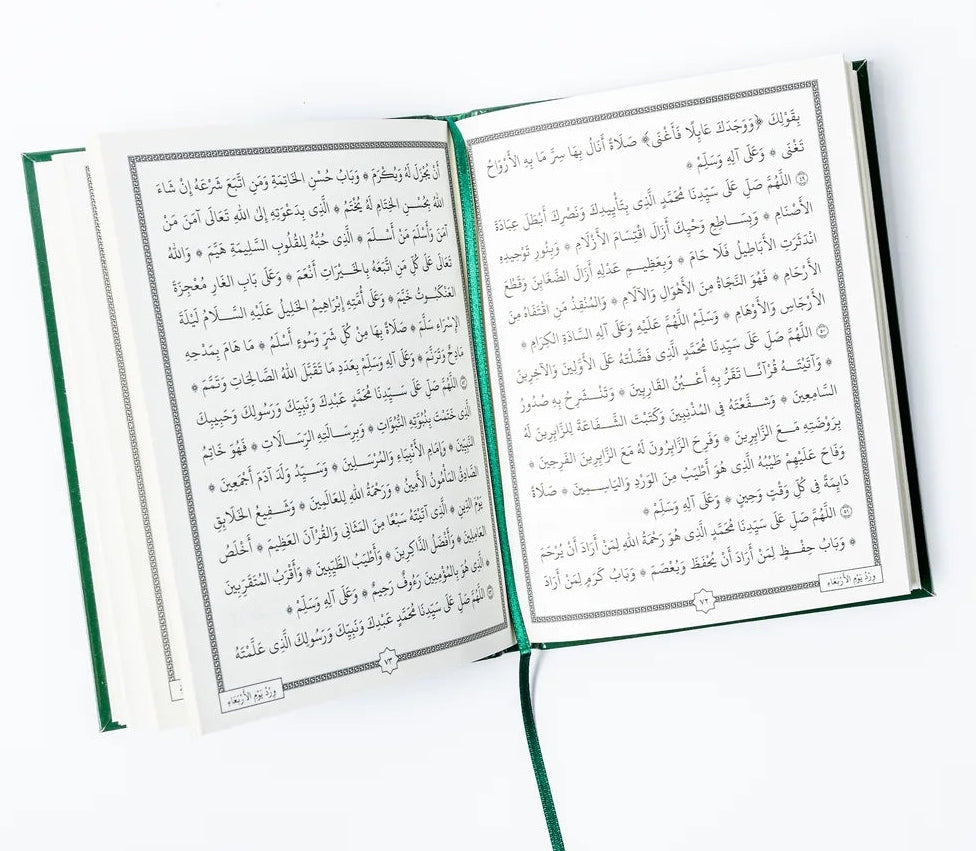 بِقَوْلِكَ ﴿وَوَجَدَكَ عَابِلًا فَأَغْنَى﴾ صَلَاةً أَنَالُ بِهَا سِرَّ مَا بِهِ الأَرْوَاحُ
تَغْنَى ۞ وَعَلَى آلِهِ وَسَلِّمْ ۞
٤٩ اللَّهُمَّ صَلِّ عَلَى سَيِّدِنَا مُحَمَّدٍ الَّذِى بِتَأْيِيدِكَ وَنَصْرِكَ أَبْطَلَ عِبَادَةَ
الأَصْنَامِ ۞ وَبِسَاطِعِ وَحْيِكَ أَزَالَ اقْتِسَامَ الأَزْلَامِ ۞ وَبِنُورِ تَوْحِيدِهِ
انْدَثَرَتِ الأَبَاطِيلُ فَلَا حَامَ ۞ وَبِعَظِيمِ عَدْلِهِ أَزَالَ الضَّغَايِنَ وَقَطْعَ
الأَرْحَامِ ۞ فَهُوَ النَّجَاةُ مِنَ الأَهْوَالِ وَالآلَامِ ۞ وَالمُنْقِذُ مَنِ اقْتَفَاهُ مِنَ
الأَرْجَاسِ وَالأَوْهَامِ ۞ وَسَلِّمِ اللَّهُمَّ عَلَيْهِ وَعَلَى آلِهِ السَّادَةِ الكِرَامِ ۞
٥٠ اللَّهُمَّ صَلِّ عَلَى سَيِّدِنَا مُحَمَّدٍ الَّذِى فَضَّلْتَهُ عَلَى الأَوَّلِينَ وَالآخِرِينَ
۞ وَآتَيْتَهُ قُرْآنًا تَقَرُّ بِهِ أَعْيُنُ القَارِيِينَ ۞ وَتَنْشَرِحُ بِهِ صُدُورُ
السَّامِعِينَ ۞ وَشَفَّعْتَهُ فِى المُذْنِبِينَ وَكَتَبْتَ الشَّفَاعَةَ لِلزَّابِرِينَ لَهُ
بِرَوْضَتِهِ مَعَ الزَّابِرِينَ ۞ وَفَرِحَ الزَّابِرُونَ لَهُ مَعَ الزَّابِرِينَ الفَرِحِينَ ۞
وَفَاحَ عَلَيْهِمْ طِيبُهُ الَّذِى هُوَ أَطْيَبُ مِنَ الوَرْدِ وَاليَاسِمِينَ ۞ صَلَاةً
دَايِمَةً فِى كُلِّ وَقْتٍ وَحِينٍ ۞ وَعَلَى آلِهِ وَسَلِّمْ ۞
٥١ اللَّهُمَّ صَلِّ عَلَى سَيِّدِنَا مُحَمَّدٍ الَّذِى هُوَ رَحْمَةُ اللهِ لِمَنْ أَرَادَ أَنْ يُرْحَمَ
۞ وَبَابُ حِفْظٍ لِمَنْ أَرَادَ أَنْ يُحْفَظَ وَيُعْصَمَ ۞ وَبَابُ كَرَمٍ لِمَنْ أَرَادَ
وِرْدُ يَوْمِ الأَرْبَعَاءِ
٧٢
أَنْ يُجْزَلَ لَهُ وَيُكْرَمَ ۞ وَبَابُ حُسْنِ الخَاتِمَةِ وَمَنِ اتَّبَعَ شَرْعَهُ إِنْ شَاءَ
اللهُ بِحُسْنِ الخِتَامِ لَهُ يُخْتَمُ ۞ الَّذِى بِدَعْوَتِهِ إِلَى اللهِ تَعَالَى آمَنَ مَنْ
آمَنَ وَأَسْلَمَ مَنْ أَسْلَمَ ۞ الَّذِى حُبُّهُ لِلْقُلُوبِ السَّلِيمَةِ هَيَّمَ ۞ وَاللهُ
تَعَالَى عَلَى كُلِّ مَنِ اتَّبَعَهُ بِالخَيْرَاتِ أَنْعَمَ ۞ وَعَلَى بَابِ الغَارِ مُعْجِزَةً
العَنْكَبُوتُ خَيَّمَ ۞ وَعَلَى أُمَّتِهِ إِبْرَاهِيمُ الخَلِيلُ عَلَيْهِ السَّلَامُ لَيْلَةَ
الإِسْرَاءِ سَلَّمَ ۞ صَلَاةً بِهَا مِنْ كُلِّ شَرٍّ وَسُوءٍ أَسْلَمُ ۞ مَا هَامَ بِمَدْحِهِ
مَادِحٌ وَتَرَنَّمَ ۞ وَعَلَى آلِهِ وَسَلِّمْ بِعَدَدِ مَا تَقَبَّلَ اللهُ الصَّالِحَاتِ وَتَمَّمَ ۞
اللَّهُمَّ صَلِّ عَلَى سَيِّدِنَا مُحَمَّدٍ عَبْدِكَ وَنَبِيِّكَ وَرَسُولِكَ وَحَبِيبِكَ
الَّذِى خَتَمْتَ بِنُبُوَّتِهِ النُّبُوَّاتِ ۞ وَبِرِسَالَتِهِ الرِّسَالَاتِ ۞ فَهُوَ خَاتِمُ
النَّبِيِّينَ ۞ وَإِمَامُ الأَنْبِيَاءِ وَالمُرْسَلِينَ ۞ وَسَيِّدُ وَلَدِ آدَمَ أَجْمَعِينَ ۞
الصَّادِقُ المَأْمُونُ الأَمِينُ ۞ وَرَحْمَةُ اللهِ لِلعَالَمِينَ ۞ وَشَفِيعُ الخَلَايِقِ
يَوْمَ الدِّينِ ۞ الَّذِى آتَيْتَهُ سَبْعًا مِنَ المَثَانِى وَالقُرْآنَ العَظِيمَ ۞ أَخْلَصُ
العَامِلِينَ ۞ وَأَفْضَلُ الذَّاكِرِينَ ۞ وَأَطْيَبُ الطَّيِّبِينَ ۞ وَأَقْرَبُ المُتَقَرِّبِينَ
۞ الَّذِى هُوَ بِالمُؤْمِنِينَ رَءُوفٌ رَحِيمٌ ۞ وَعَلَى آلِهِ وَسَلِّمْ ۞
اللَّهُمَّ صَلِّ عَلَى سَيِّدِنَا مُحَمَّدٍ عَبْدِكَ وَنَبِيِّكَ وَرَسُولِكَ الَّذِى عَلَّمْتَهُ
٧٣
وِرْدُ يَوْمِ الأَرْبَعَاءِ